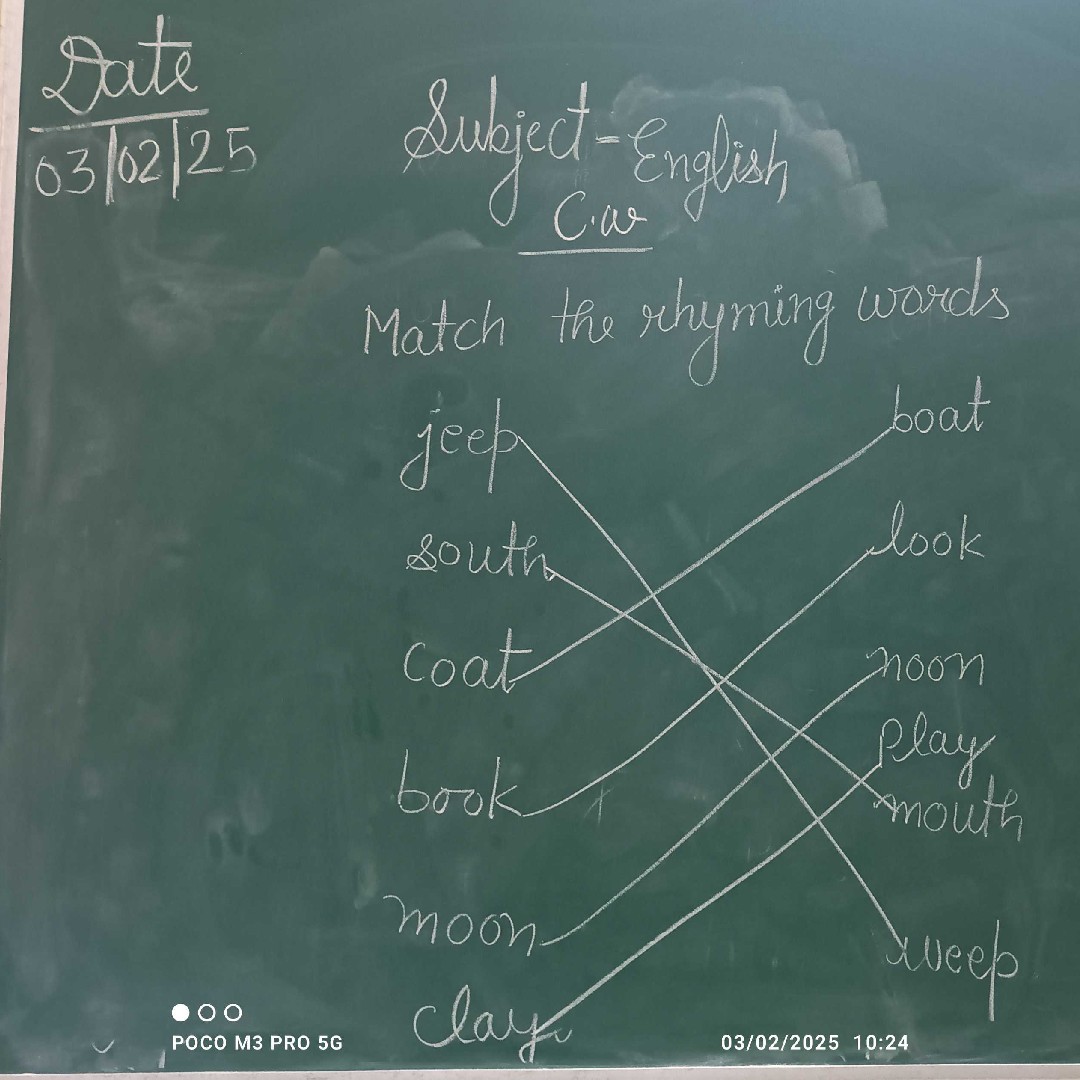 Date
03/02/25
Subject-English
C.w
Match the rhyming words
jeep boat
south look
coat noon
book play
moon mouth
clay weep
POCO M3 PRO 5G 03/02/2025 10:24